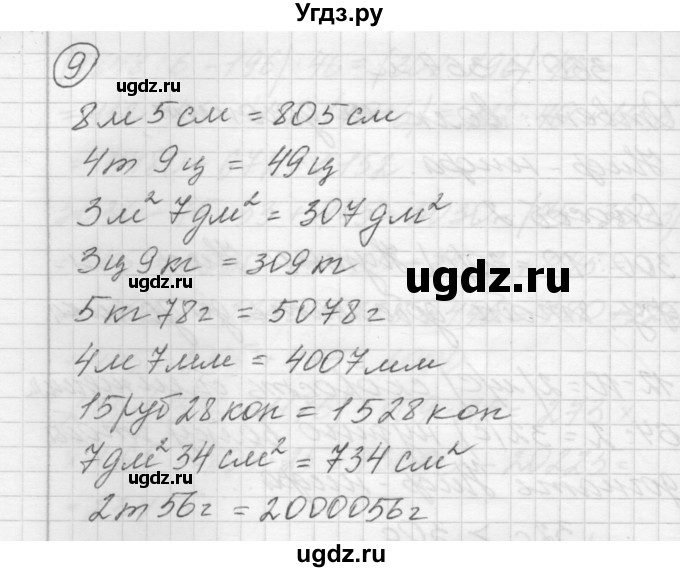 Угдз.ру
9
ugdz.ru
ugdz.ru
8м 5см = 805см
4т 9ц = 49ц
3м² 7дм² = 307дм²
3ц 9кг = 309кг
ugdz.ru
ugdz.ru
5кг 78г = 5078г
4м 7мм = 4007мм
15руб 28коп = 1528коп
7дм² 34см² = 734см²
ugdz.ru
ugdz.ru
2т 56г = 2000056г
ugdz.ru